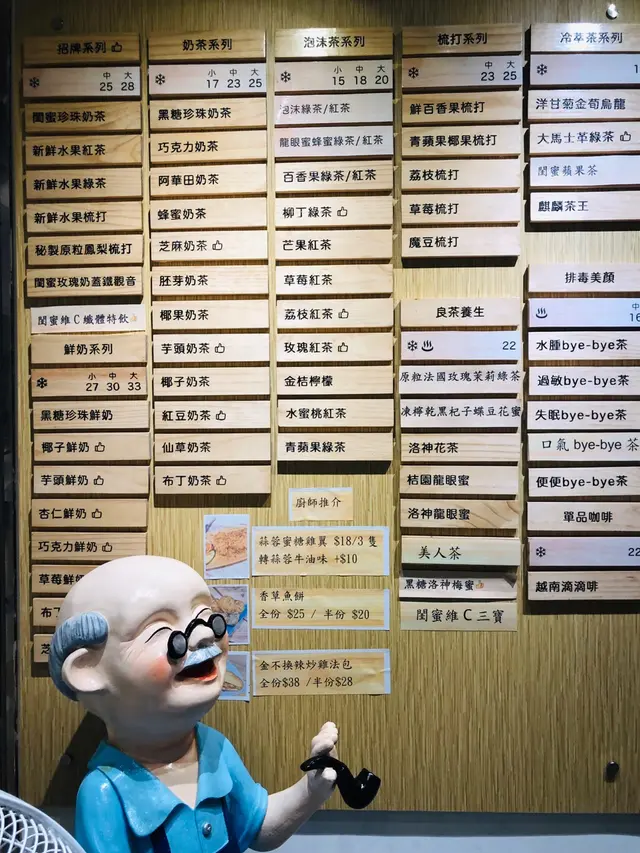 招牌系列
中 大
25 28
閨蜜珍珠奶茶
新鮮水果紅茶
新鮮水果綠茶
新鮮水果梳打
秘製原粒鳳梨梳打
閨蜜玫瑰奶蓋鐵觀音
閨蜜維C纖體特飲
鮮奶系列
小 中 大
27 30 33
黑糖珍珠鮮奶
椰子鮮奶
芋頭鮮奶
杏仁鮮奶
巧克力鮮奶
草莓鮮
布
芝
奶茶系列
小 中 大
17 23 25
黑糖珍珠奶茶
巧克力奶茶
阿華田奶茶
蜂蜜奶茶
芝麻奶茶
胚芽奶茶
椰果奶茶
芋頭奶茶
椰子奶茶
紅豆奶茶
仙草奶茶
布丁奶茶
泡沫茶系列
小 中 大
15 18 20
泡沫綠茶/紅茶
龍眼蜜蜂蜜綠茶/紅茶
百香果綠茶/紅茶
柳丁綠茶
芒果紅茶
草莓紅茶
荔枝紅茶
玫瑰紅茶
金桔檸檬
水蜜桃紅茶
青蘋果綠茶
廚師推介
蒜蓉蜜糖雞翼 $18/3隻
轉蒜蓉牛油味 +$10
香草魚餅
全份 $25 / 半份 $20
金不換辣炒雞法包
全份$38 /半份$28
梳打系列
中 大
23 25
鮮百香果梳打
青蘋果椰果梳打
荔枝梳打
草莓梳打
魔豆梳打
良茶養生
22
原粒法國玫瑰茉莉綠茶
凍檸乾黑杞子蝶豆花蜜
洛神花茶
桔園龍眼蜜
洛神龍眼蜜
美人茶
黑糖洛神梅蜜
閨蜜維C三寶
冷萃茶系列
1
洋甘菊金萄烏龍
大馬士革綠茶
閨蜜蘋果茶
麒麟茶王
排毒美顏
中
16
水腫bye-bye茶
過敏bye-bye茶
失眠bye-bye茶
口氣bye-bye茶
便便bye-bye茶
單品咖啡
22
越南滴滴啡